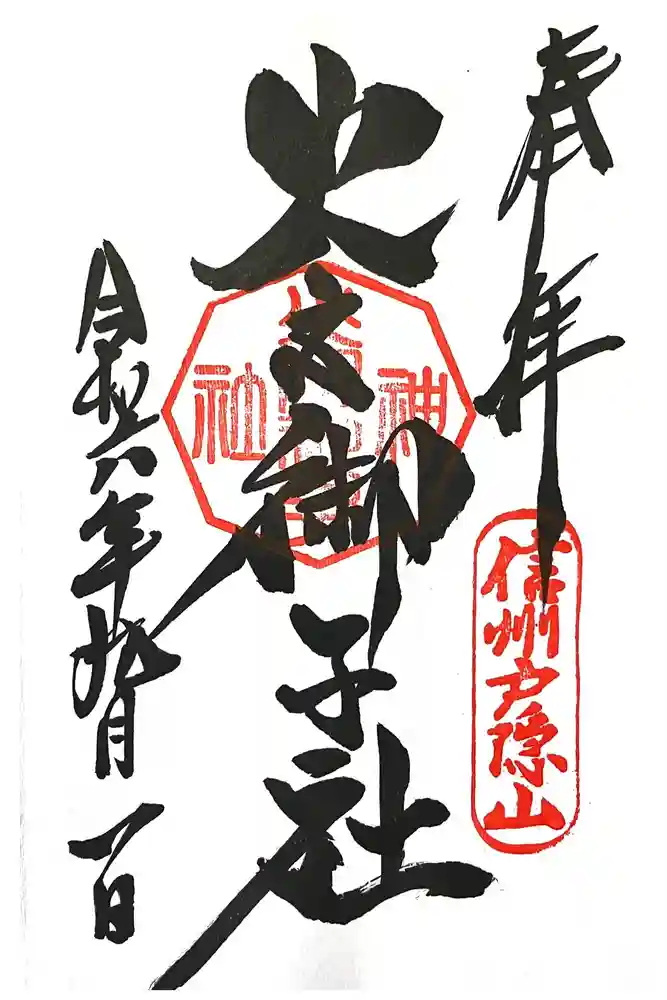 奉拝
信州戸隠山
火之御子社
神社
令和六年九月一日